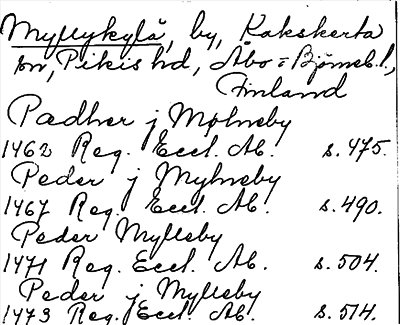 Myllykylä, by, Kakskerta
sn, Pikis hd, Åbo=Björneb. l.,
Finland
Pædher j Mølneby
1462 Reg. Eccl. Ab. s. 475.
Peder j Mylneby
1467 Reg. Eccl. Ab. s. 490.
Peder Mylleby
1471 Reg. Eccl. Ab. s. 504.
Peder j Mylleby
1473 Reg. Eccl. Ab. s. 514.